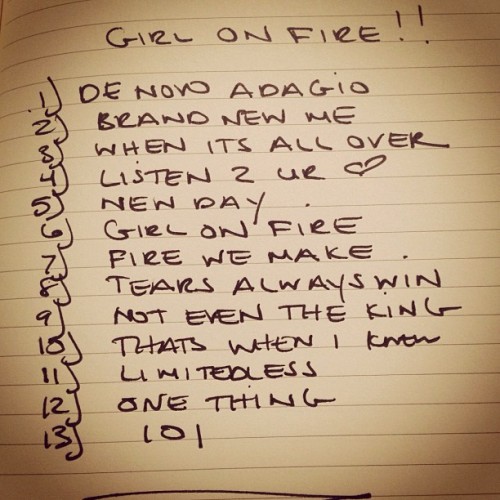 GIRL ON FIRE!!
1) DE NOVO ADAGIO
2) BRAND NEW ME
3) WHEN ITS ALL OVER
4) LISTEN 2 UR ♡
5) NEW DAY.
6) GIRL ON FIRE
7) FIRE WE MAKE.
8) TEARS ALWAYS WIN
9) NOT EVEN THE KING
10) THATS WHEN I KNEW
11) LIMITEDLESS
12) ONE THING
13) 101